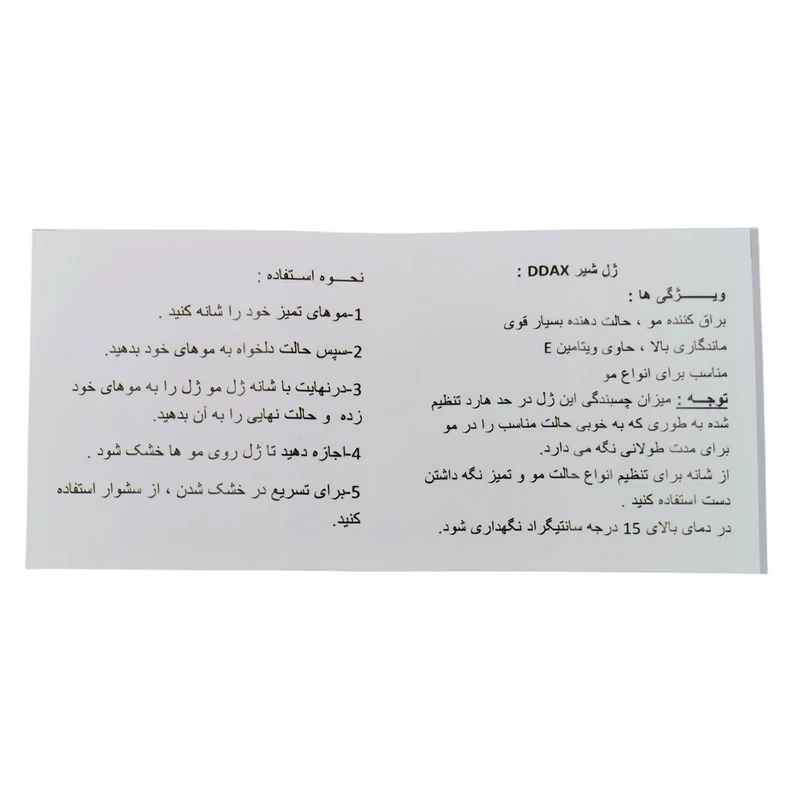 ژل شیر DDAX :
ویـــــژگی ها :
براق کننده مو ، حالت دهنده بسیار قوی
ماندگاری بالا ، حاوی ویتامین E
مناسب برای انواع مو
توجــه : میزان چسبندگی این ژل در حد هارد تنظیم
شده به طوری که به خوبی حالت مناسب را در مو
برای مدت طولانی نگه می دارد.
از شانه برای تنظیم انواع حالت مو و تمیز نگه داشتن
دست استفاده کنید .
در دمای بالای 15 درجه سانتیگراد نگهداری شود.
نحـــوه اســتفاده :
1-موهای تمیز خود را شانه کنید .
2-سپس حالت دلخواه به موهای خود بدهید.
3-درنهایت با شانه ژل مو ژل را به موهای خود
زده و حالت نهایی را به آن بدهید.
4-اجازه دهید تا ژل روی مو ها خشک شود .
5-برای تسریع در خشک شدن ، از سشوار استفاده
کنید.